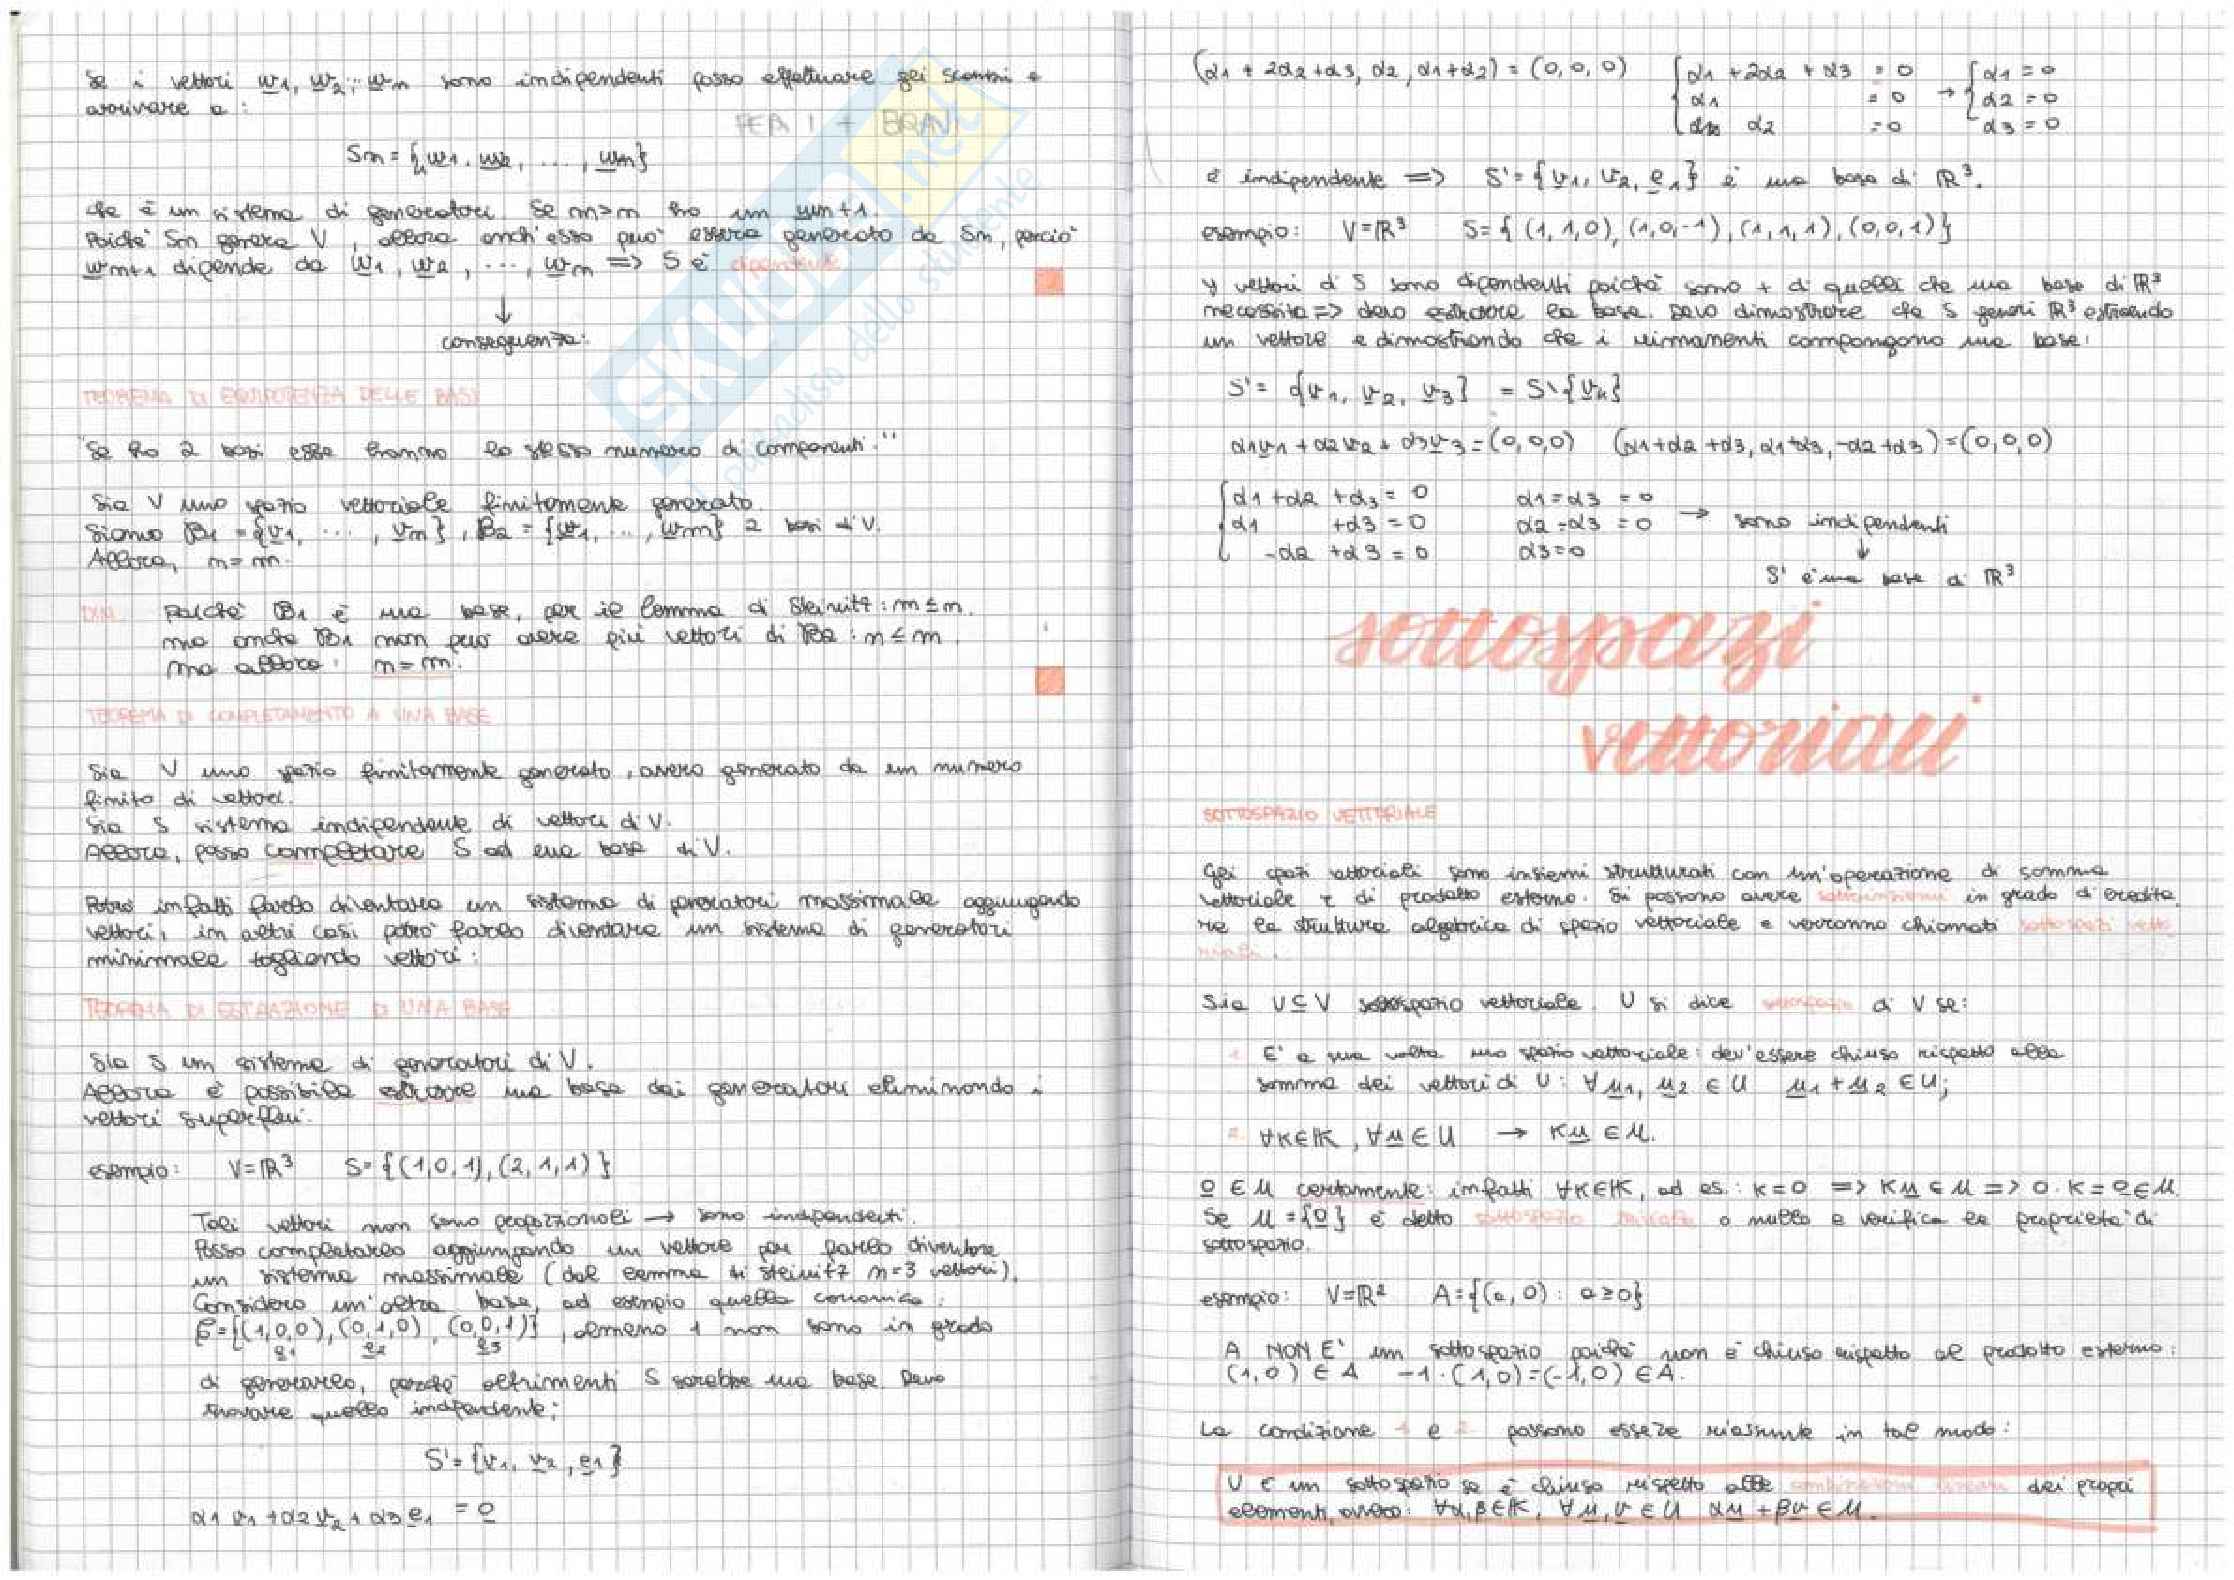 Se i vettori w1, w2, ..., wn sono indipendenti posso effettuare gli scambi e
arrivare a:
Sn = {w1, w2, ..., wn}
che è un sistema di generatori. Se m>n ho un wn+1.
Poiché Sn genera V, allora anch'esso può essere generato da Sn, perciò
wn+1 dipende da w1, w2, ..., wn => S è dipendente
↓
conseguenza:
TEOREMA DI EQUIPOTENZA DELLE BASI
"Se ho 2 basi esse hanno lo stesso numero di componenti."
Sia V uno spazio vettoriale finitamente generato.
Siano B1 = {v1, ..., vn}, B2 = {w1, ..., wm} 2 basi di V.
Allora, n=m.
DIM. Poiché B1 è una base, per il lemma di Steinitz: m≤n.
ma anche B1 non può avere più vettori di B2: n≤m.
Ma allora: n=m.
TEOREMA DI COMPLETAMENTO A UNA BASE
Sia V uno spazio finitamente generato, ovvero generato da un numero
finito di vettori.
Sia S sistema indipendente di vettori di V.
Allora, posso completare S ad una base di V.
Potrò infatti farlo diventare un sistema di generatori massimale aggiungendo
vettori, in altri casi potrò farlo diventare un sistema di generatori
minimale togliendo vettori:
TEOREMA DI ESTRAZIONE DI UNA BASE
Sia S un sistema di generatori di V.
Allora è possibile estrarre una base dai generatori eliminando i
vettori superflui.
esempio: V=ℝ³ S={(1,0,1),(2,1,1)}
Tali vettori non sono proporzionali → sono indipendenti.
Posso completarlo aggiungendo un vettore per farlo diventare
un sistema massimale (dal lemma di Steinitz n=3 vettori).
Considero un'altra base, ad esempio quella canonica:
E={(1,0,0),(0,1,0),(0,0,1)}, almeno 1 non sono in grado
e1 e2 e3
di generarlo, perché altrimenti S sarebbe una base. Devo
trovare quello indipendente:
S'={v1, v2, e1}
α1 v1 + α2 v2 + α3 e1 = 0
(α1 + 2α2 + α3, α2, α1+α2) = (0,0,0) { α1 + 2α2 + α3 = 0 { α1 = 0
α1 = 0 → α2 = 0
α2 = 0 α3 = 0
è indipendente => S'={v1, v2, e1} è una base di ℝ³.
esempio: V=ℝ³ S={(1,1,0),(1,0,-1),(1,1,1),(0,0,1)}
4 vettori di S sono dipendenti poiché sono + di quelli che una base di ℝ³
necessita => devo estrarre la base. Devo dimostrare che S generi ℝ³ estraendo
un vettore e dimostrando che i rimanenti compongono una base:
S' = {v1, v2, v3} = S\{v4}
α1v1 + α2v2 + α3v3 = (0,0,0) (α1+α2+α3, α1+α3, -α2+α3) = (0,0,0)
{ α1 + α2 + α3 = 0 α1=α3 = 0
α1 + α3 = 0 α2=α3 = 0 → sono indipendenti
-α2 + α3 = 0 α3=0 ↓
S' è una base di ℝ³
sottospazi
vettoriali
SOTTOSPAZIO VETTORIALE
Gli spazi vettoriali sono insiemi strutturati con un'operazione di somma
vettoriale e di prodotto esterno. Si possono avere sottoinsiemi in grado di eredita
re la struttura algebrica di spazio vettoriale e verranno chiamati sottospazi vetto
riali.
Sia U⊆V sottospazio vettoriale. U si dice sottospazio di V se:
1. E' a sua volta uno spazio vettoriale: dev'essere chiuso rispetto alla
somma dei vettori di U: ∀u1, u2 ∈ U u1 + u2 ∈ U;
2. ∀k∈K, ∀u∈U → ku ∈ U.
0 ∈ U certamente: infatti ∀k∈K, ad es.: k=0 => ku ∈ U => 0·k = 0 ∈ U.
Se U={0} è detto sottospazio banale o nullo e verifica le proprietà di
sottospazio.
esempio: V=ℝ² A={(a,0): a≥0}
A NON E' un sottospazio poiché non è chiuso rispetto al prodotto esterno:
(1,0) ∈ A -1·(1,0)=(-1,0) ∈ A.
La condizione 1 e 2 possono essere riassunte in tal modo:
U è un sottospazio se è chiuso rispetto alle combinazioni lineari dei propri
elementi, ovvero: ∀α,β∈K, ∀u,v∈U αu+βv∈U.
SKUOLA.net
il paradiso dello studente